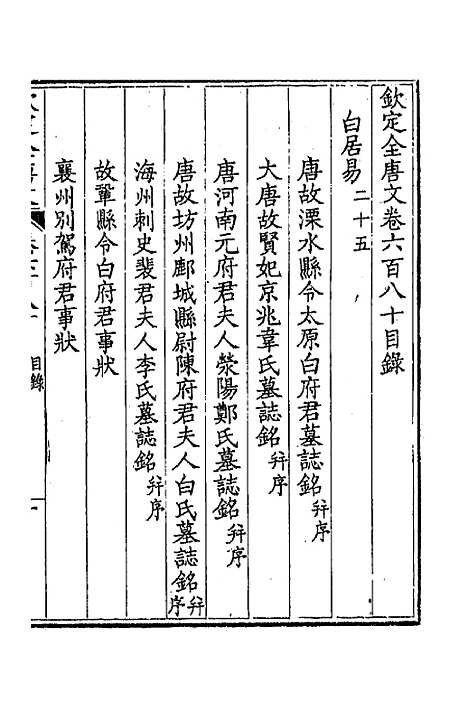 欽定全唐文卷六百八十目錄
白居易二十五
唐故溧水縣令太原白府君墓誌銘并序
大唐故賢妃京兆韋氏墓誌銘并序
唐河南元府君夫人滎陽鄭氏墓誌銘并序
唐故坊州鄜城縣尉陳府君夫人白氏墓誌銘并序
海州刺史裴君夫人李氏墓誌銘并序
故鞏縣令白府君事狀
襄州別駕府君事狀
目錄
一